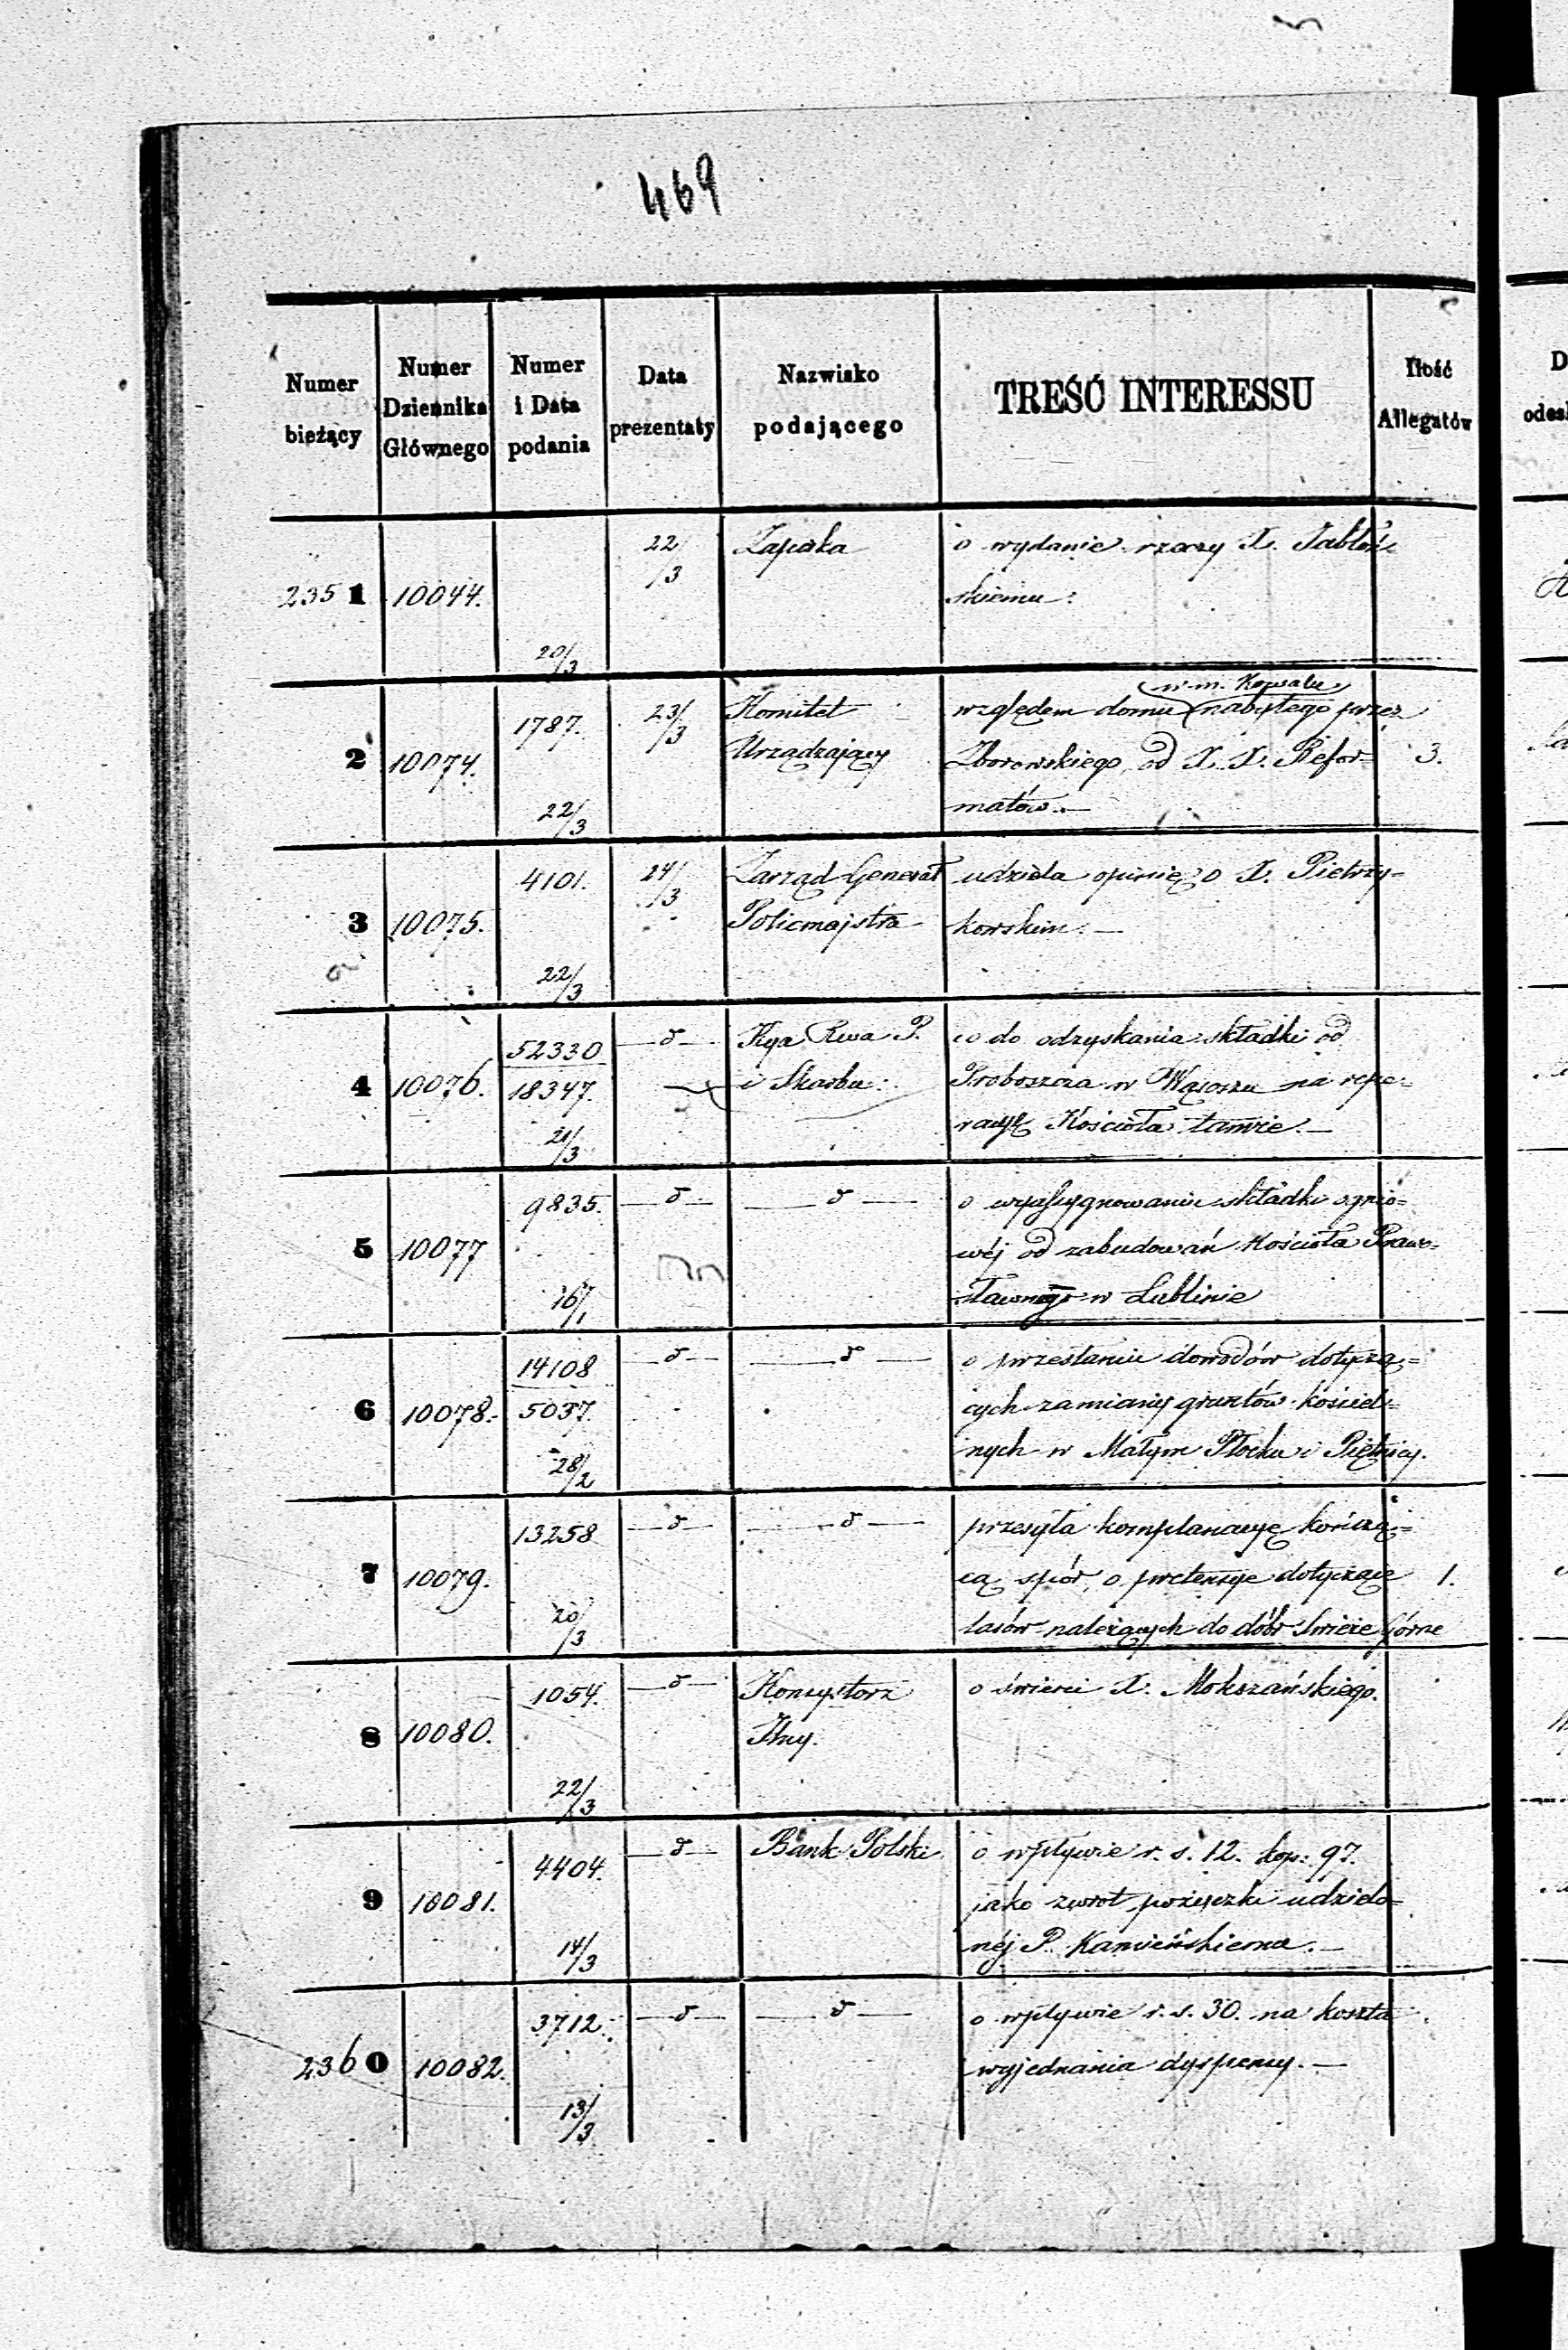 469
Numer bieżący | Numer Dziennika Głównego | Numer i Data podania | Data prezentaty | Nazwisko podającego | TREŚĆ INTERESSU | Ilość Allegatów
2351 | 10044. | 20/3 | 22/3 | Zapiska | o wydanie rzeczy X. Jabłoń-
skiemu.
2 | 10074. | 1787. 22/3 | 23/3 | Komitet Urządzający | względem domu (w m. Kowalu) nabytego przez
Zborowskiego od X. X. Refor= | 3.
matów.—
3 | 10075. | 4101. 22/3 | 24/3 | Zarząd Generał Policmajstra | udziela opinię o X. Pietrzy=
kowskim.—
4 | 10076. | 52330 18347. 21/3 | —d— | Kya Rwa P. i Skarbu. | co do odzyskania składki od
Proboszcza w Wąsoszu na repe-
racyę Kościoła tamże.—
5 | 10077 | 9835. 16/1 | —d— | —d— | o wyassygnowanie składki ognio=
wéj od zabudowań Kościoła Prawo=
sławnego w Lublinie
6 | 10078. | 14108 5037. 28/2 | —d— | —d— | o przesłanie dowodów dotyczą=
cych zamiany gruntów kościel=
nych w Małym Płocku i Piętnicy.
7 | 10079. | 13258 20/3 | —d— | —d— | przesyła komplanacyę kończą=
cą spór o pretensye dotyczące | 1.
lasów należących do dóbr Świeże Górne
8 | 10080. | 1054. 22/3 | —d— | Konsystorz | o śmierci X. Mokszańskiego.
9 | 10081. | 4404. 14/3 | —d— | Bank Polski | o wpływie r. s. 12. kop: 97.
jako zwrot pożyczki udzielo=
néj P. Kamieńskiemu.—
2360 | 10082. | 3712. 13/3 | —d— | —d— | o wpływie r. s. 30. na koszta
wyjednania dyspensy.—